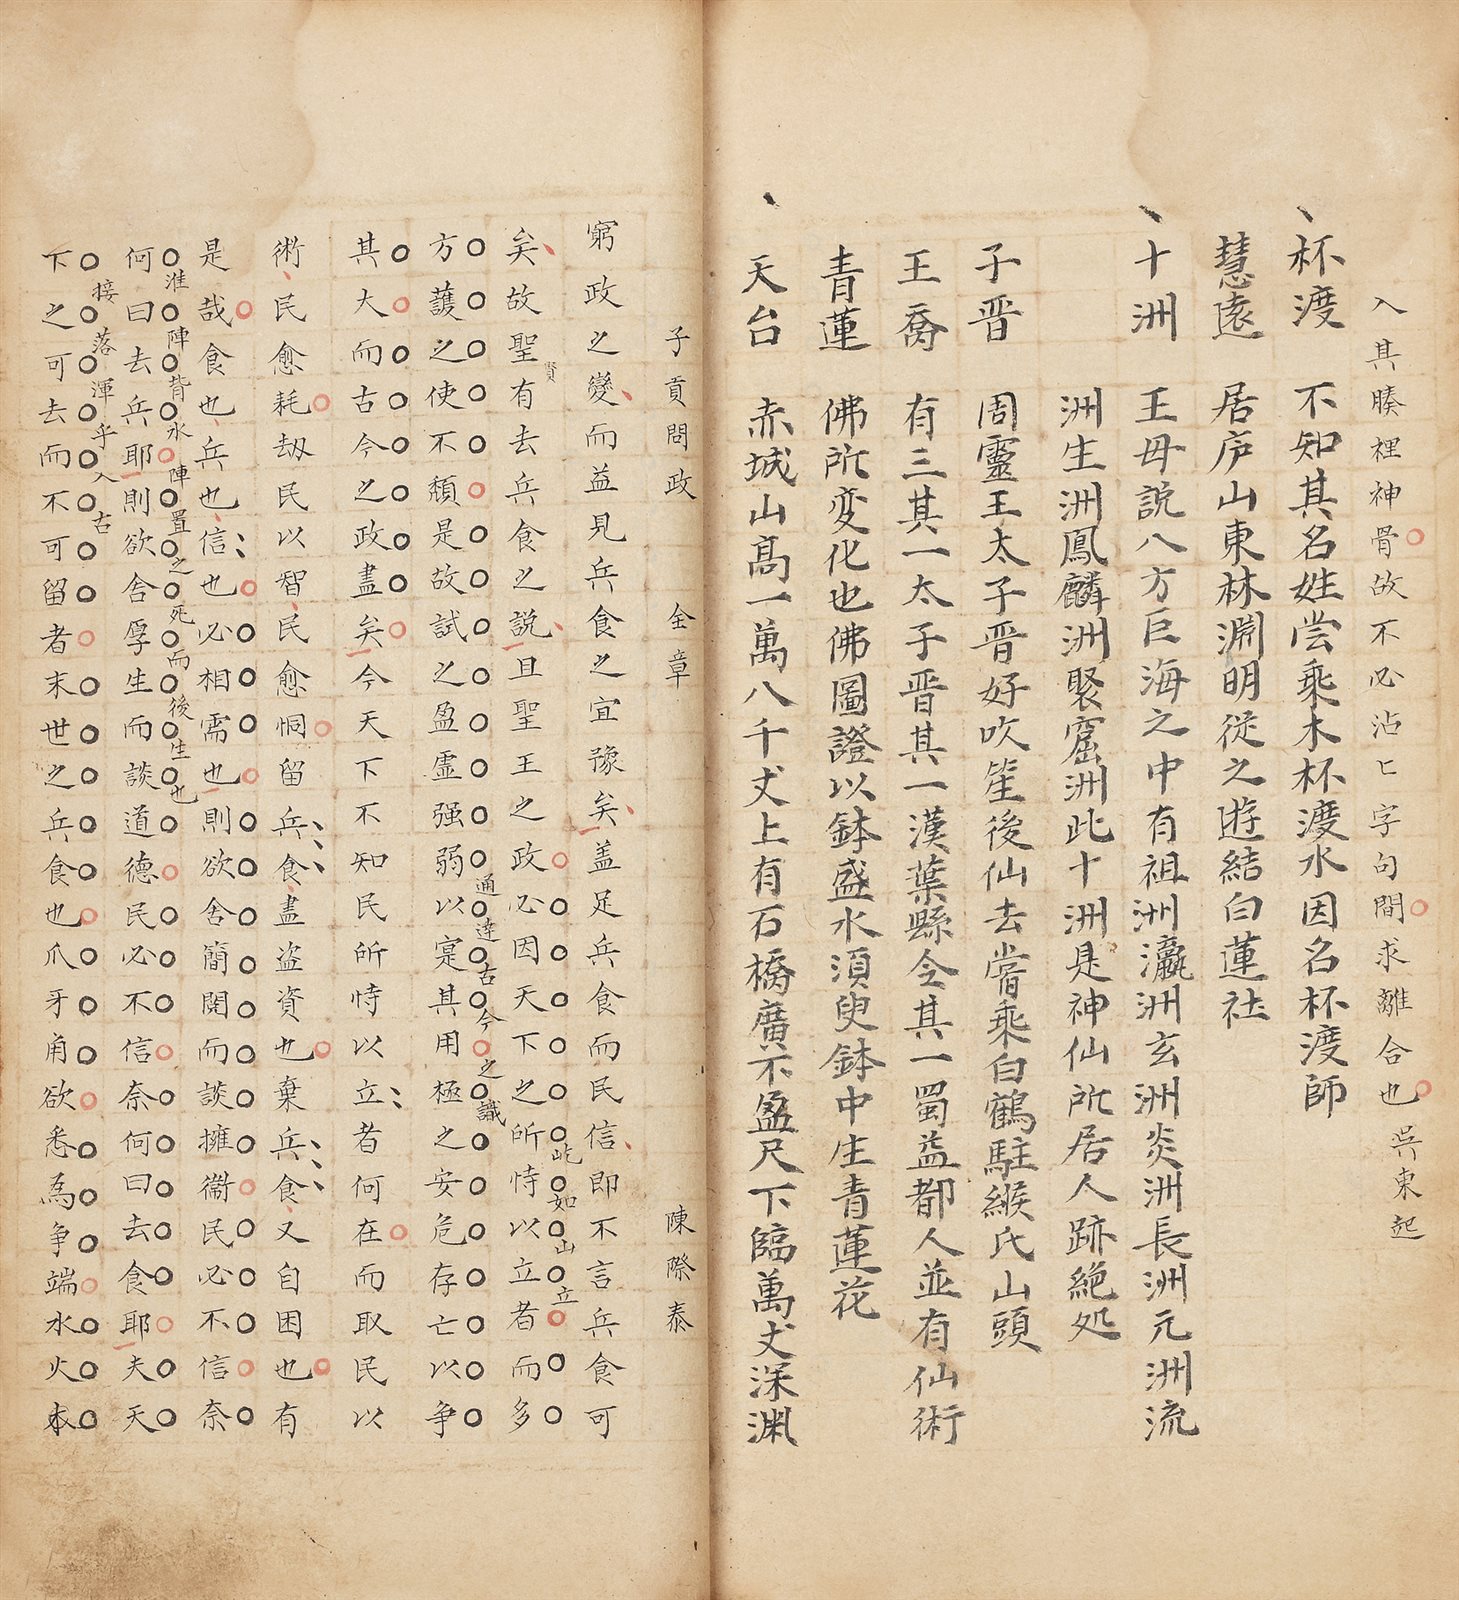 入其腠裡神骨故不必沾匕字句間求離合也 吳東起
杯渡 不知其名姓尝乘木杯渡水因名杯渡師
慧遠 居庐山東林淵明從之遊結白蓮社
十洲 王母説八方巨海之中有祖洲瀛洲玄洲炎洲長洲元洲流
洲生洲鳳麟洲聚窟洲此十洲是神仙所居人跡絕処
子晋 周靈王太子晋好吹笙後仙去嘗乘白鶴駐緱氏山頭
王喬 有三其一太子晋其一漢葉縣令其一蜀益都人並有仙術
青蓮 佛所变化也佛圖證以鉢盛水須臾鉢中生青蓮花
天台 赤城山高一萬八千丈上有石橋廣不盈尺下臨萬丈深渊
子貢問政 全章 陳際泰
窮政之變而益見兵食之宜豫矣盖足兵食而民信即不言兵食可
矣故聖有去兵食之説且聖王之政必因天下之所恃以立者而多
賢
屹如山立
方護之使不頽是故試之盈虚强弱以寔其用極之安危存亡以争
通達古今之識
其大而古今之政盡矣今天下不知民所恃以立者何在而取民以
術民愈耗刼民以智民愈恫留兵食盡盗資也棄兵食又自困也有
是哉食也兵也信也必相需也則欲舍簡閱而談擁衞民必不信奈
何曰去兵耶則欲舍厚生而談道德民必不信奈何曰去食耶夫天
淮陣背水陣置之死而後生也
下之可去而不可留者末世之兵食也爪牙角欲悉為争端水火本
接落渾乎入古